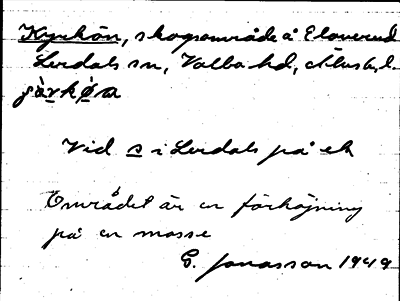 Kyrkön, skogsområde å Elaverud
Lerdals sn, Valbo hd, Älvsb. l.
Vid s i Lerdals på ek
Området är en förhöjning
på en mosse
E. Jonasson 1949